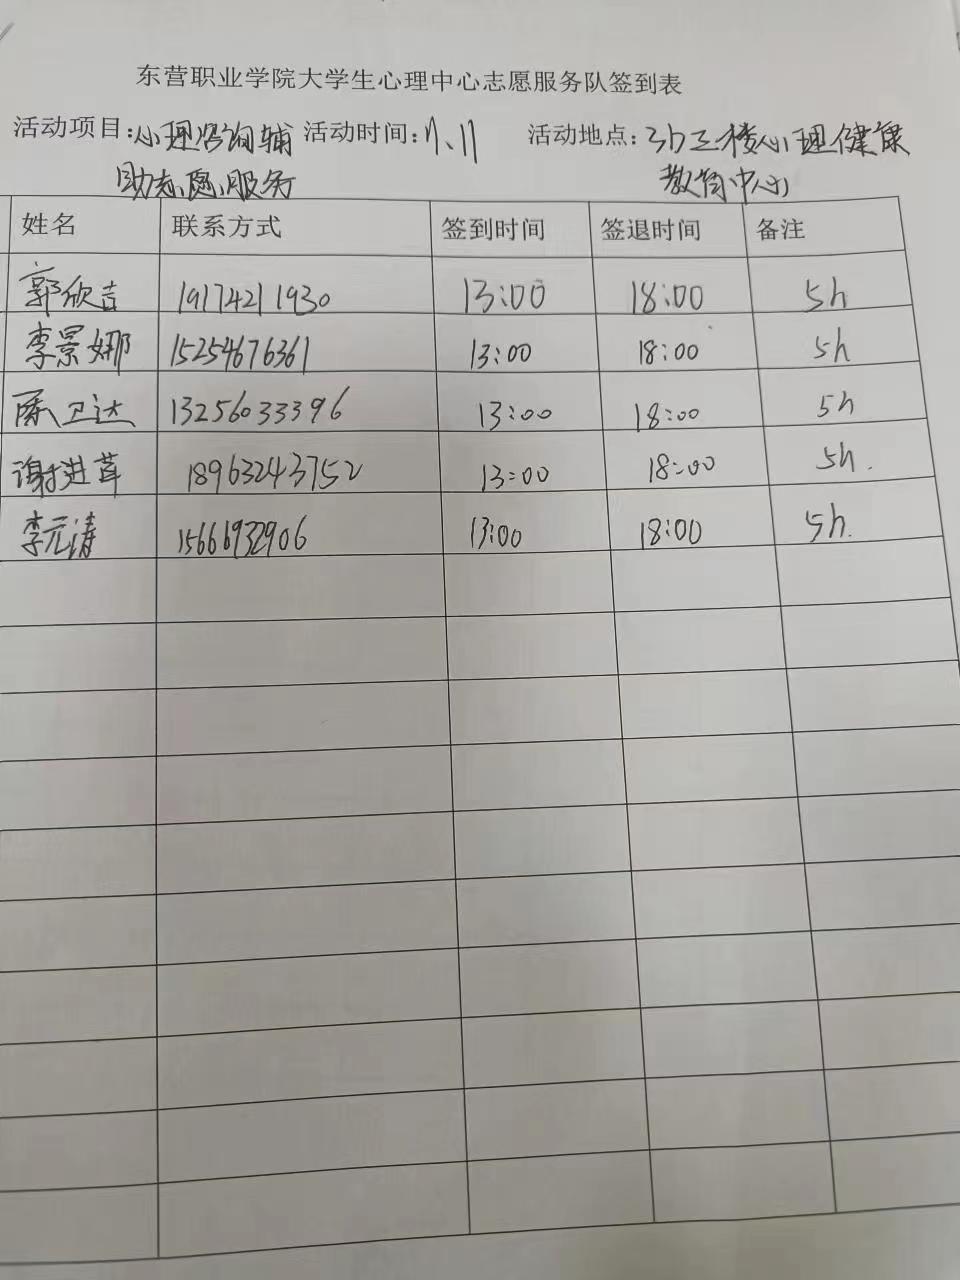 东营职业学院大学生心理中心志愿服务队签到表
活动项目:心理咨询辅 活动时间:11.11 活动地点:3h三楼心理健康
助志愿服务 教育中心
姓名 联系方式 签到时间 签退时间 备注
郭欣吉 19174211930 13:00 18:00 5h
李景娜 15254676361 13:00 18:00 5h
陈卫达 13256033396 13:00 18:00 5h
谢进茸 18963243752 13:00 18:00 5h.
李元涛 15666932906 13:00 18:00 5h.